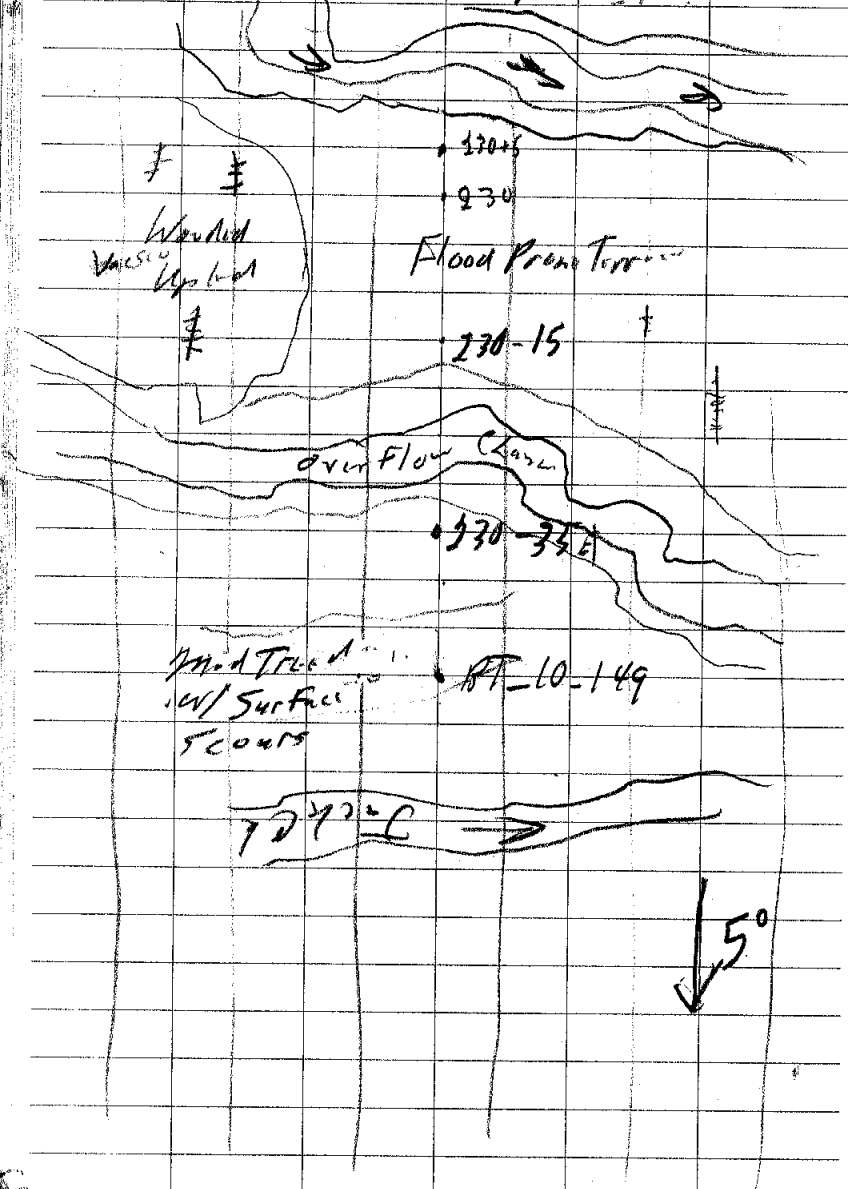 130+5
230
Wooded
Upland
Flood Prone Terrace
230-15
Over Flow Chann
230-35E
Mod Treed
w/ Surface
Scours
BT_10-149
5°